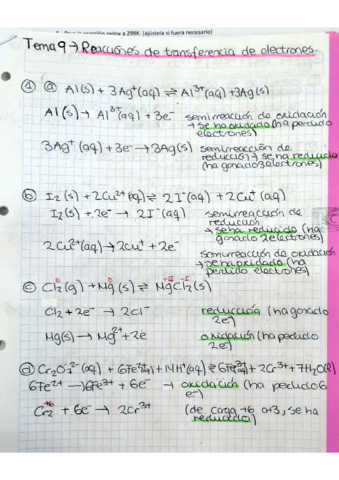 para la reacción redox a 298K: (ajústela si fuera necesario)
Tema 9 → Reacciones de transferencia de electrones.
① ⓐ Al(s) + 3Ag⁺(aq) ⇌ Al³⁺(aq) + 3Ag(s)
Al(s) → Al³⁺(aq) + 3e⁻ semirreacción de oxidación
→ se ha oxidado (ha perdido
electrones)
3Ag⁺(aq) + 3e⁻ → 3Ag(s) semirreacción de
reducción → se ha reducido
(ha ganado 3 electrones)
ⓑ I₂(s) + 2Cu²⁺(aq) ⇌ 2I⁻(aq) + 2Cu⁺(aq)
I₂(s) + 2e⁻ → 2I⁻(aq) semirreacción de
reducción
→ se ha reducido (ha
ganado 2 electrones)
2Cu²⁺(aq) → 2Cu⁺ + 2e⁻
semirreacción de oxidación
→ se ha oxidado (ha
perdido electrones)
ⓒ Cl₂(g) + Mg(s) ⇌ MgCl₂(s)
Cl₂ + 2e⁻ → 2Cl⁻ reducción (ha ganado
2e⁻)
Mg(s) → Mg²⁺ + 2e oxidación (ha perdido
2e⁻)
ⓓ Cr₂O₇²⁻(aq) + 6Fe²⁺(aq) + NH⁺(aq) ⇌ 6Fe³⁺(aq) + 2Cr³⁺ + 7H₂O(l)
6Fe²⁺ → 6Fe³⁺ + 6e⁻ → oxidación (ha perdido 6
e⁻)
Cr₂⁺⁶ + 6e⁻ → 2Cr³⁺ (de carga +6 a +3, se ha
reducido)